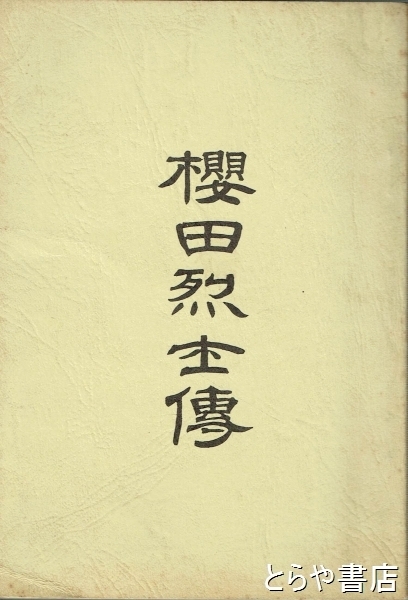 櫻田烈士傳
とらや書店